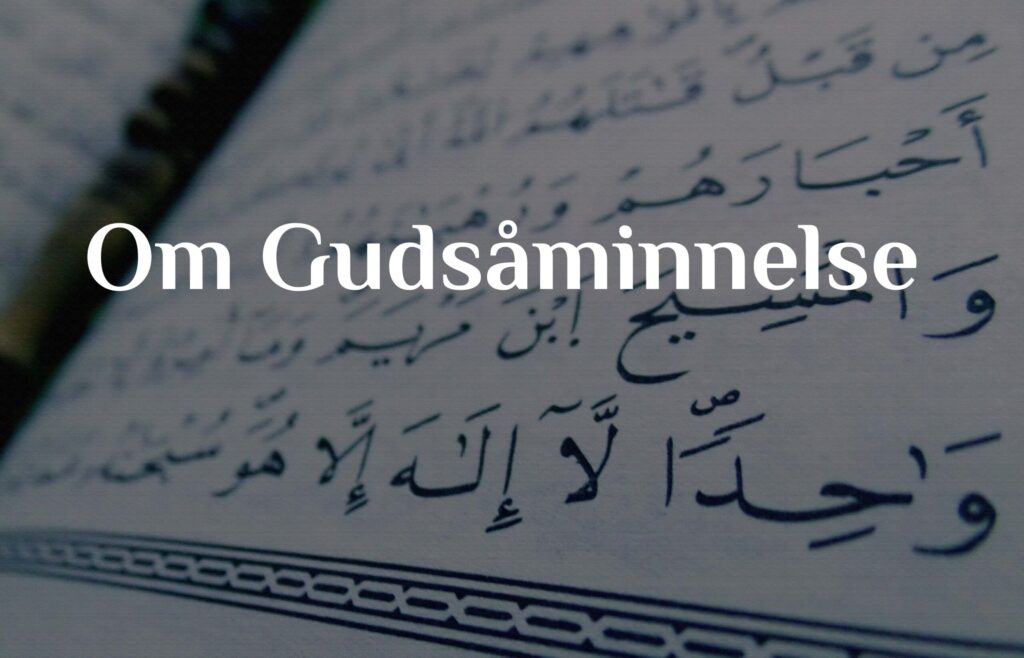 مِن قَبْلُ قَٰتَلَهُمُ ٱللَّهُ أَنَّىٰ
أَحْبَارَهُمْ وَرُهْبَٰنَهُمْ
Om Gudsåminnelse
وَٱلْمَسِيحَ ٱبْنَ مَرْيَمَ وَمَآ
وَٰحِدًا ۖ لَّآ إِلَٰهَ إِلَّا هُوَ ۚ سُبْحَٰنَهُ